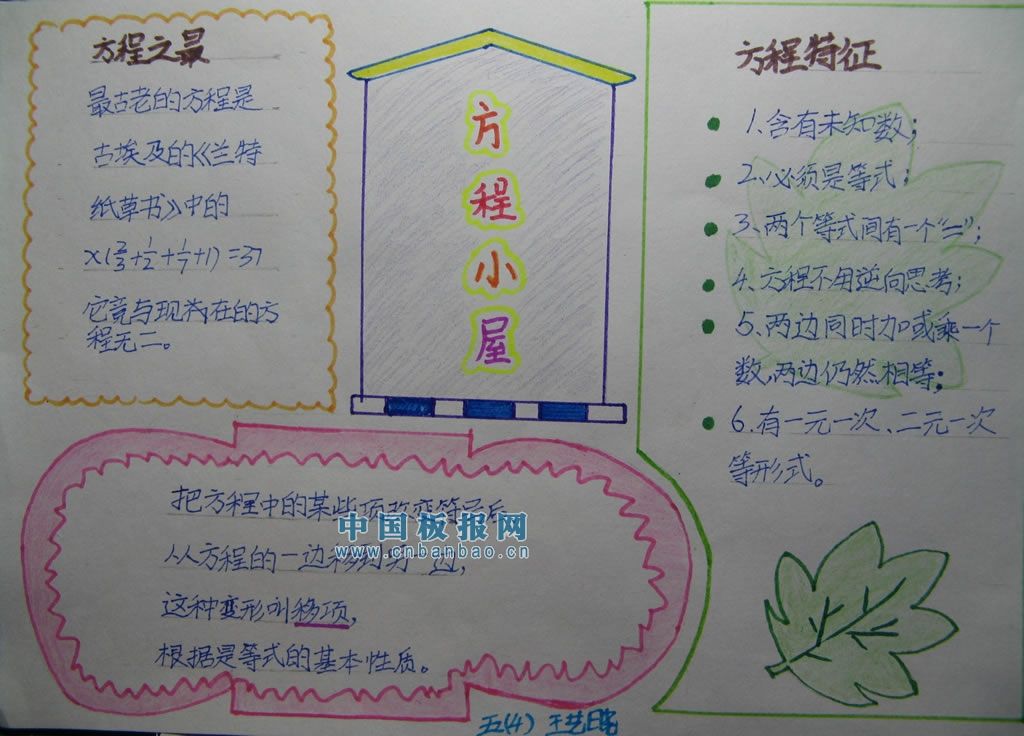 方程之最
最古老的方程是
古埃及的《兰特
纸草书》中的
x(2/3+1/2+1/7+1)=37
它竟与现我在的方
程无二。
方
程
小
屋
方程特征
1、含有未知数;
2、必须是等式;
3、两个等式间有一个“=”;
4、方程不用逆向思考;
5、两边同时加或乘一个
数,两边仍然相等;
6、有一元一次、二元一次
等形式。
把方程中的某些项改变符号后
中国板报网
www.cnbanbao.cn
从方程的一边移到另一边,
这种变形叫移项,
根据是等式的基本性质。
五(4) 王艺